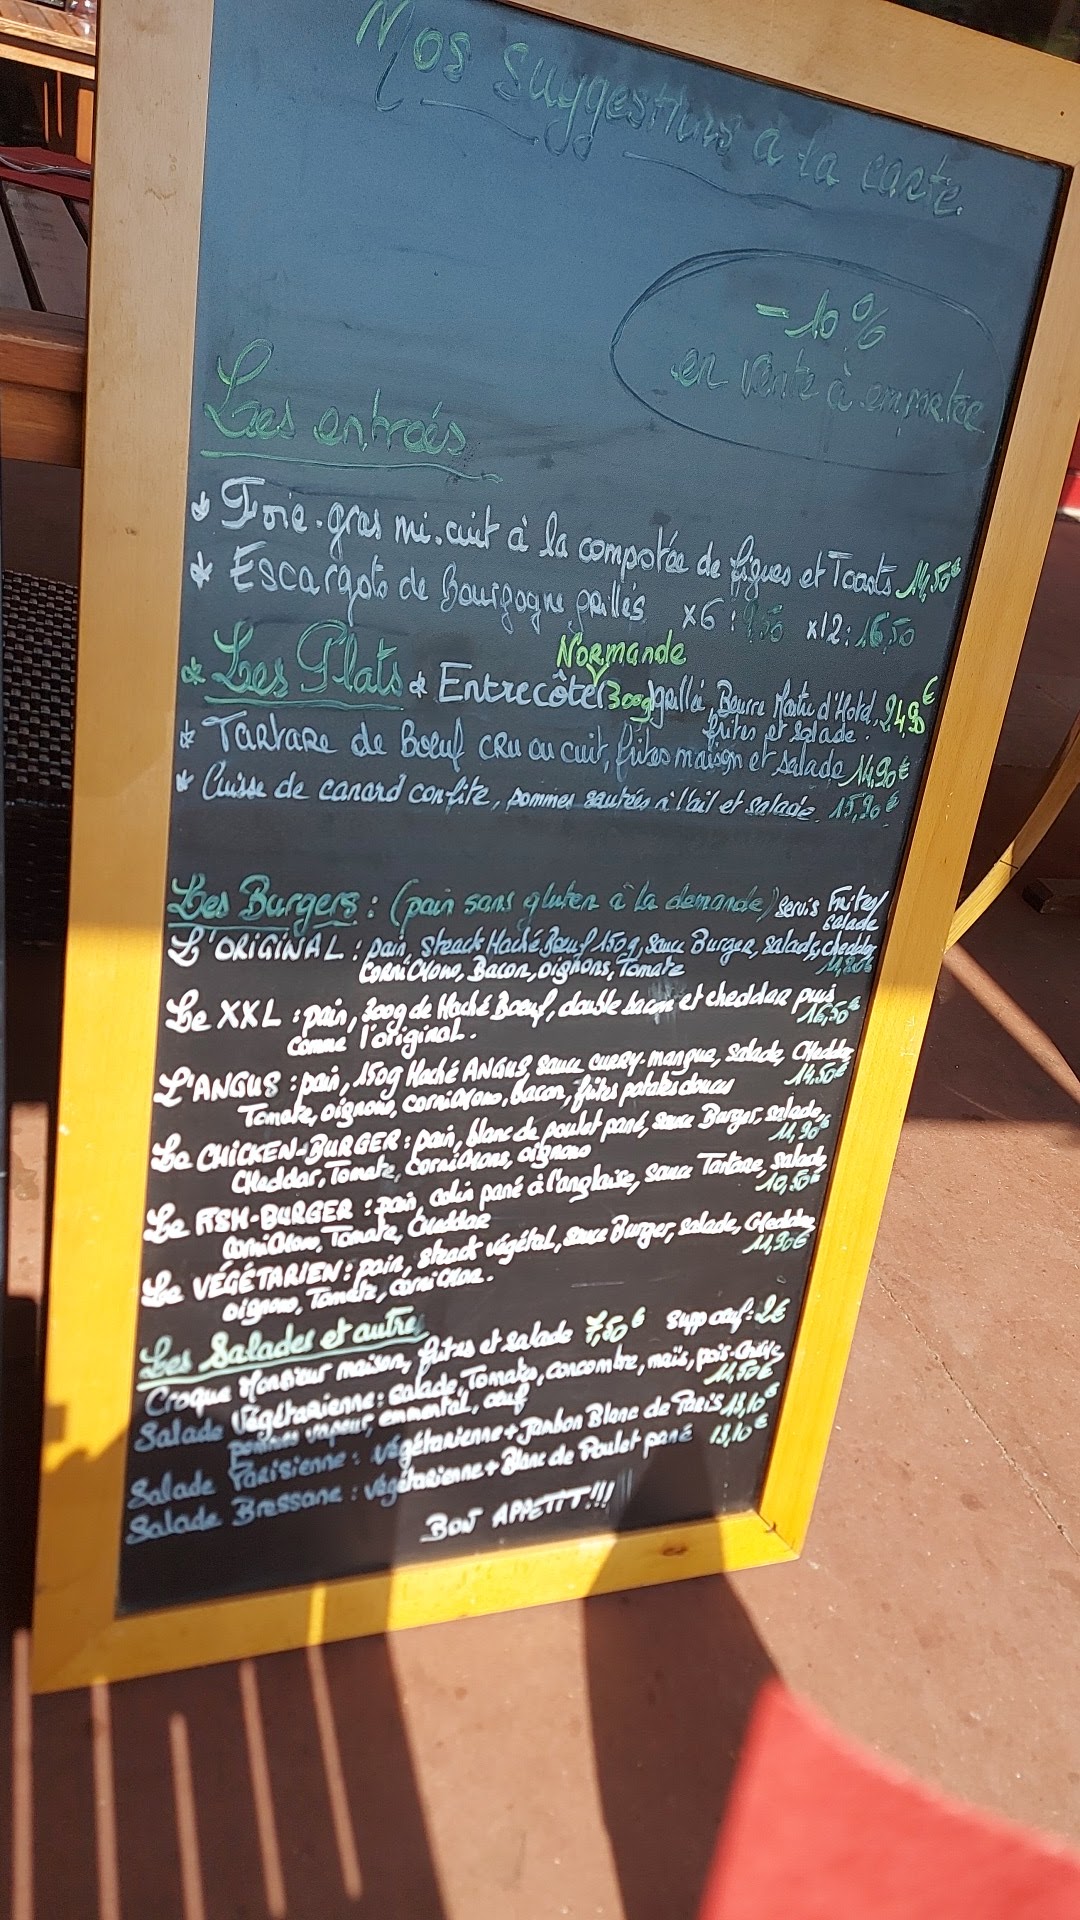 Nos suggestions à la carte
-10%
en vente à emporter
Les entrées
* Foie-gras mi-cuit à la compotée de figues et Toasts 14,50€
* Escargots de Bourgogne paillés x6: 9,50 x12: 16,50
* Les Plats
Normande
* Entrecôte 300g grillée, Beurre Maitre d'Hotel, 24,90€
frites et Salade.
* Tartare de Boeuf CRU ou cuit, frites maison et salade 14,90€
* Cuisse de canard confite, pommes sautées à l'ail et salade. 15,90€
Les Burgers: (pain sans gluten à la demande) servis Frites/
salade
L'ORIGINAL: pain, steack Haché Boeuf 150g, sauce Burger, salade, cheddar,
cornichons, Bacon, oignons, Tomate
Le XXL: pain, 300g de Haché Boeuf, double bacon et cheddar puis
comme l'original. 16,50€
L'ANGUS: pain, 150g Haché ANGUS, sauce curry-mangue, salade, Cheddar,
Tomate, oignons, cornichons, Bacon, frites patates douces 14,50€
Le CHICKEN-BURGER: pain, blanc de poulet pané, sauce Burger, salade,
Cheddar, Tomate, cornichons, oignons 11,90€
Le FISH-BURGER: pain, colin pané à l'anglaise, sauce Tartare, salade,
cornichons, Tomate, Cheddar 10,50€
Le VÉGÉTARIEN: pain, steack végétal, sauce Burger, salade, Cheddar,
oignons, Tomate, cornichon. 11,90€
Les Salades et autres
Croque Monsieur maison, frites et salade 7,50€ Supp oeuf: 2€
Salade Végétarienne: salade, Tomates, concombre, maïs, pois-chiche,
pommes vapeur, emmental, oeuf 11,50€
Salade Parisienne: végétarienne + Jambon Blanc de Paris 13,10€
Salade Bressane: végétarienne + Blanc de Poulet pané 13,10€
BON APPETIT!!!